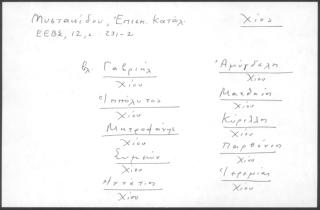 Μυστακίδου, Ἐπισκ. Κατάλ.
Χίος
ΕΕΒΣ, 12, σ. 231-2
βλ. Γαβριήλ
Χίου
Ἱππόλυτος
Χίου
Μητροφάνης
Χίου
Συμεών
Χίου
Ἰγνάτιος
Χίου
Χίου
Ματθαῖος
Χίου
Κύριλλος
Χίου
Παρθένιος
Χίου
Ἱερεμίας
Χίου